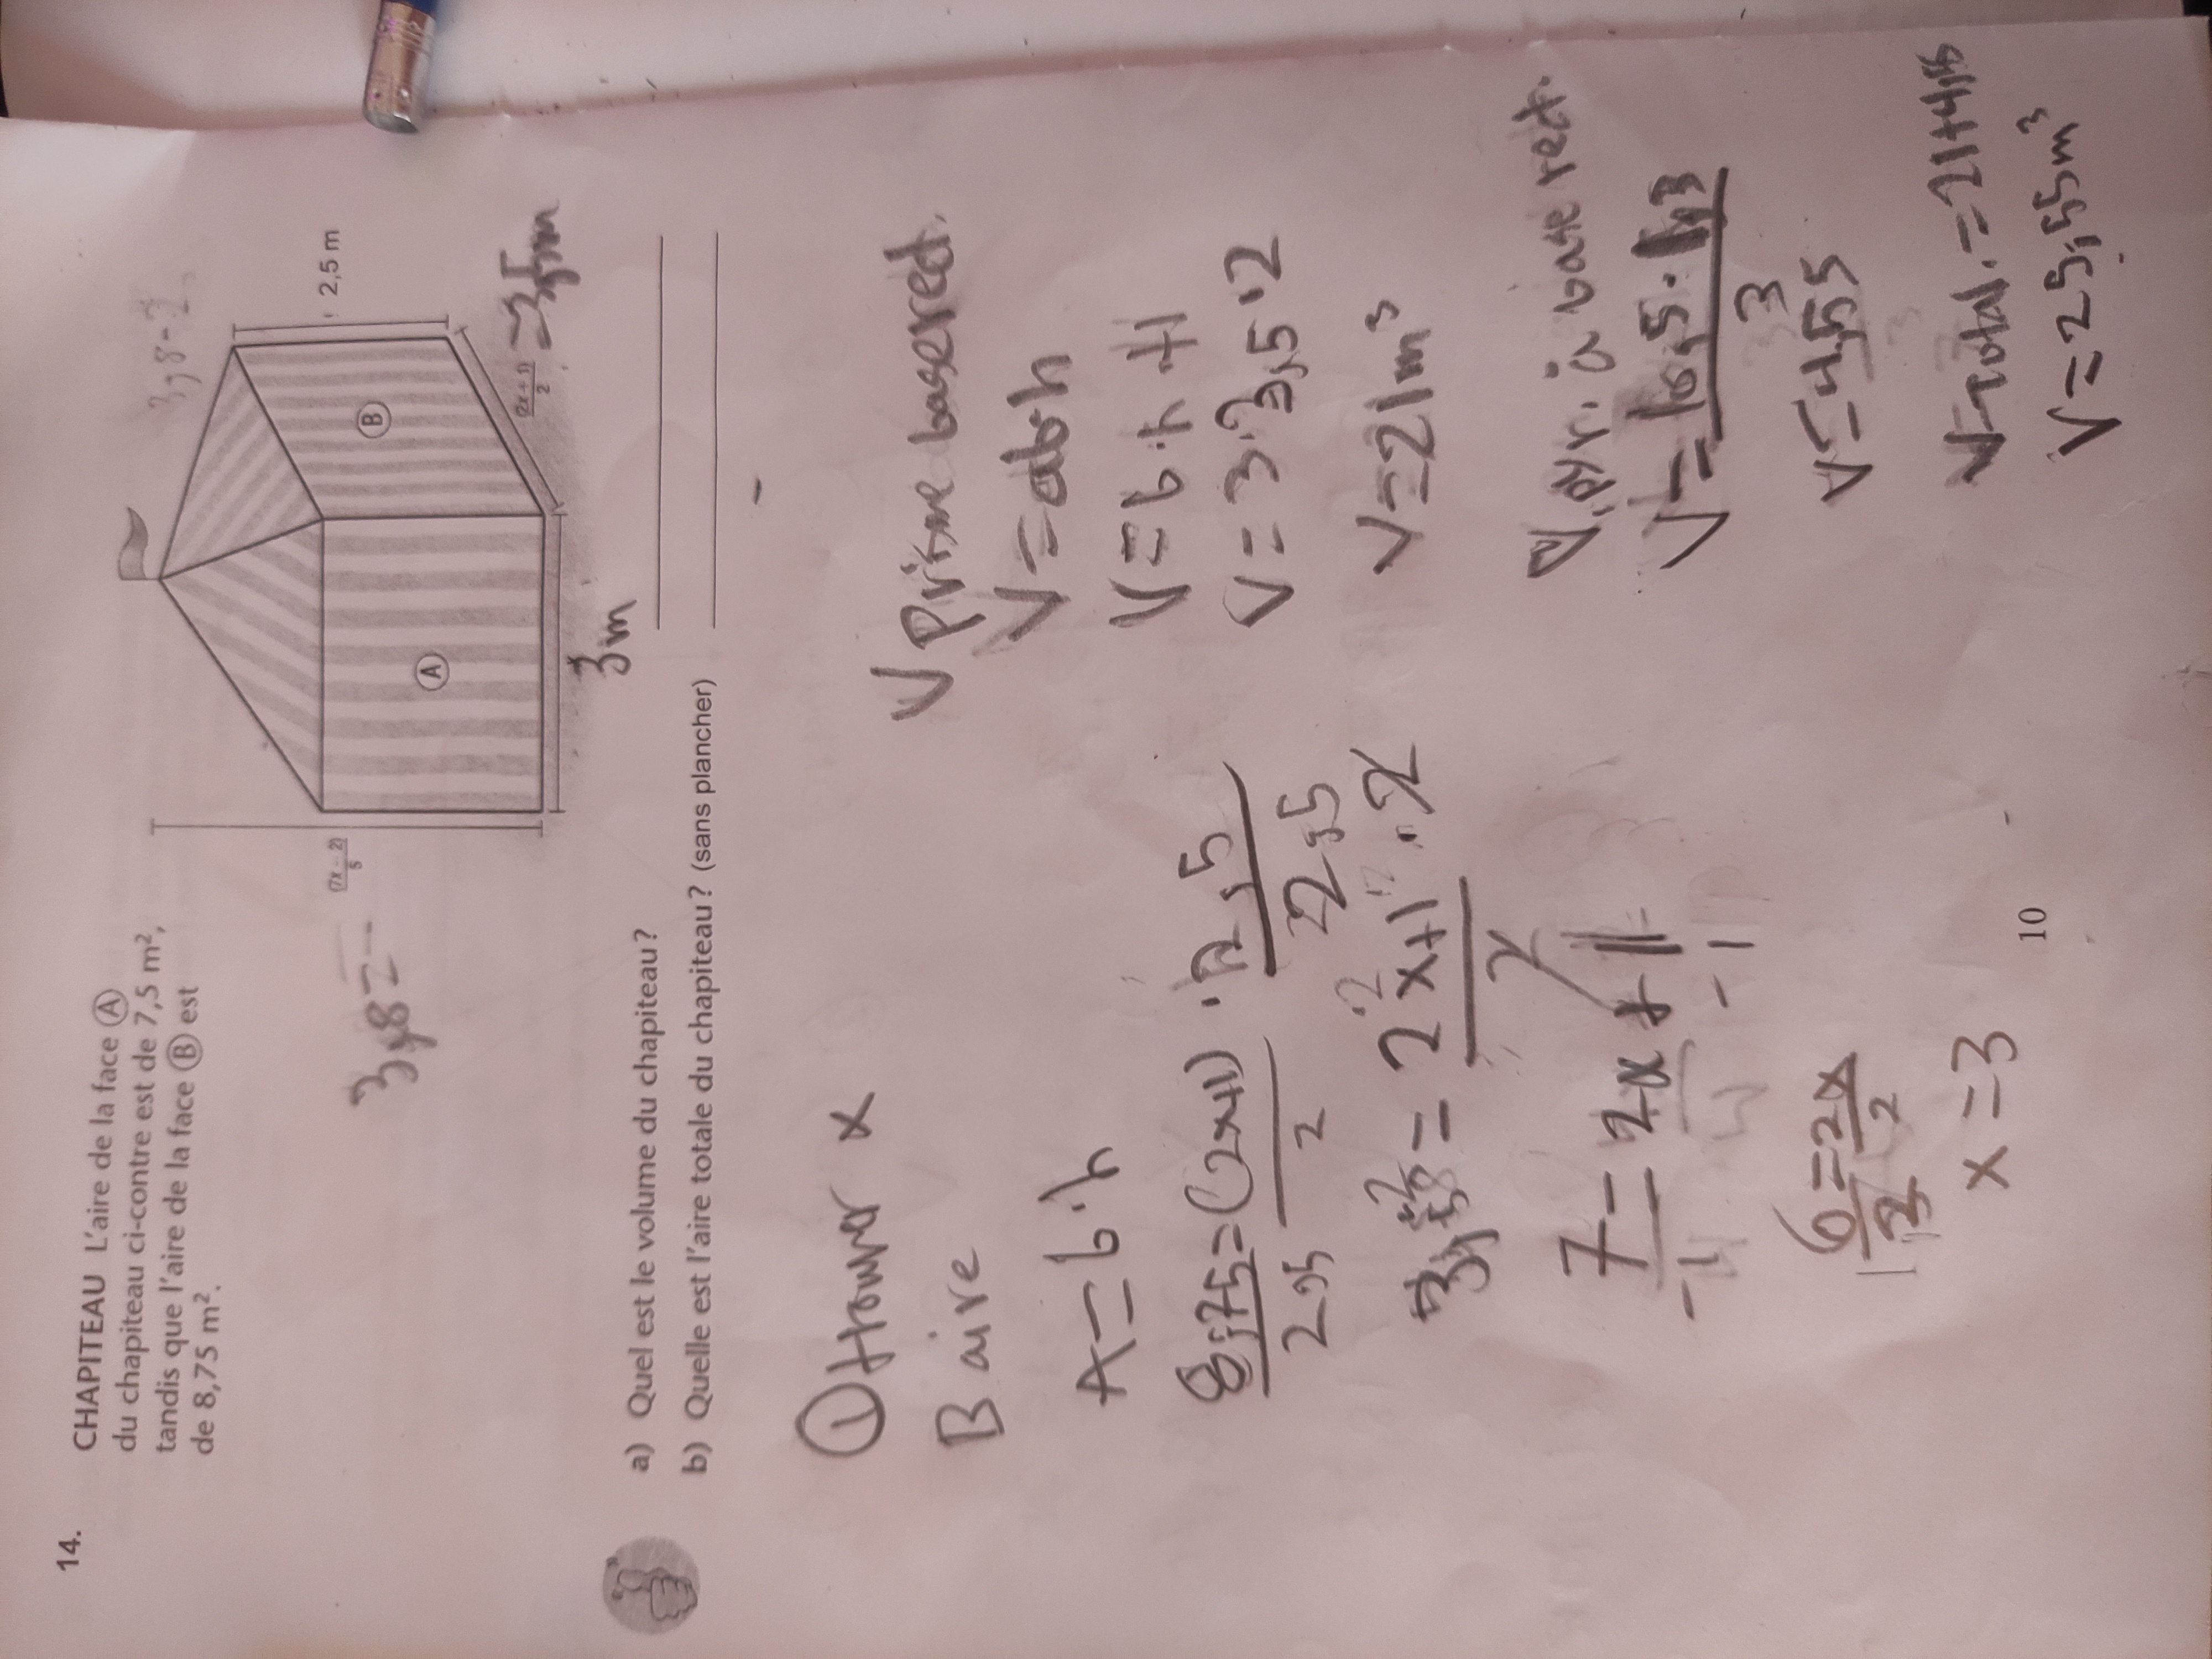 14.
CHAPITEAU L'aire de la face Ⓐ
du chapiteau ci-contre est de 7,5 m²,
tandis que l'aire de la face Ⓑ est
de 8,75 m².
3,8=
(7x – 2)
5
3,8-2
2,5 m
Ⓐ
Ⓑ
(2x + 1)
2
=3,5m
3m
a) Quel est le volume du chapiteau?
b) Quelle est l'aire totale du chapiteau? (sans plancher)
① trouver x
B aire
A=b·h
8,75=(2x+1) ·2,5
2,5 2 2,5
= 2x+1 ·2
2
7=2x+1
-1 -1
6=2x
2 2
x=3
V Prisme base rect.
V=ab·h
V=b·h·H
V=3·3,5·2
V=21m³
V pyr. à base rect.
3
V=4,55
V total.=21+4,55
V=25,55m³
10